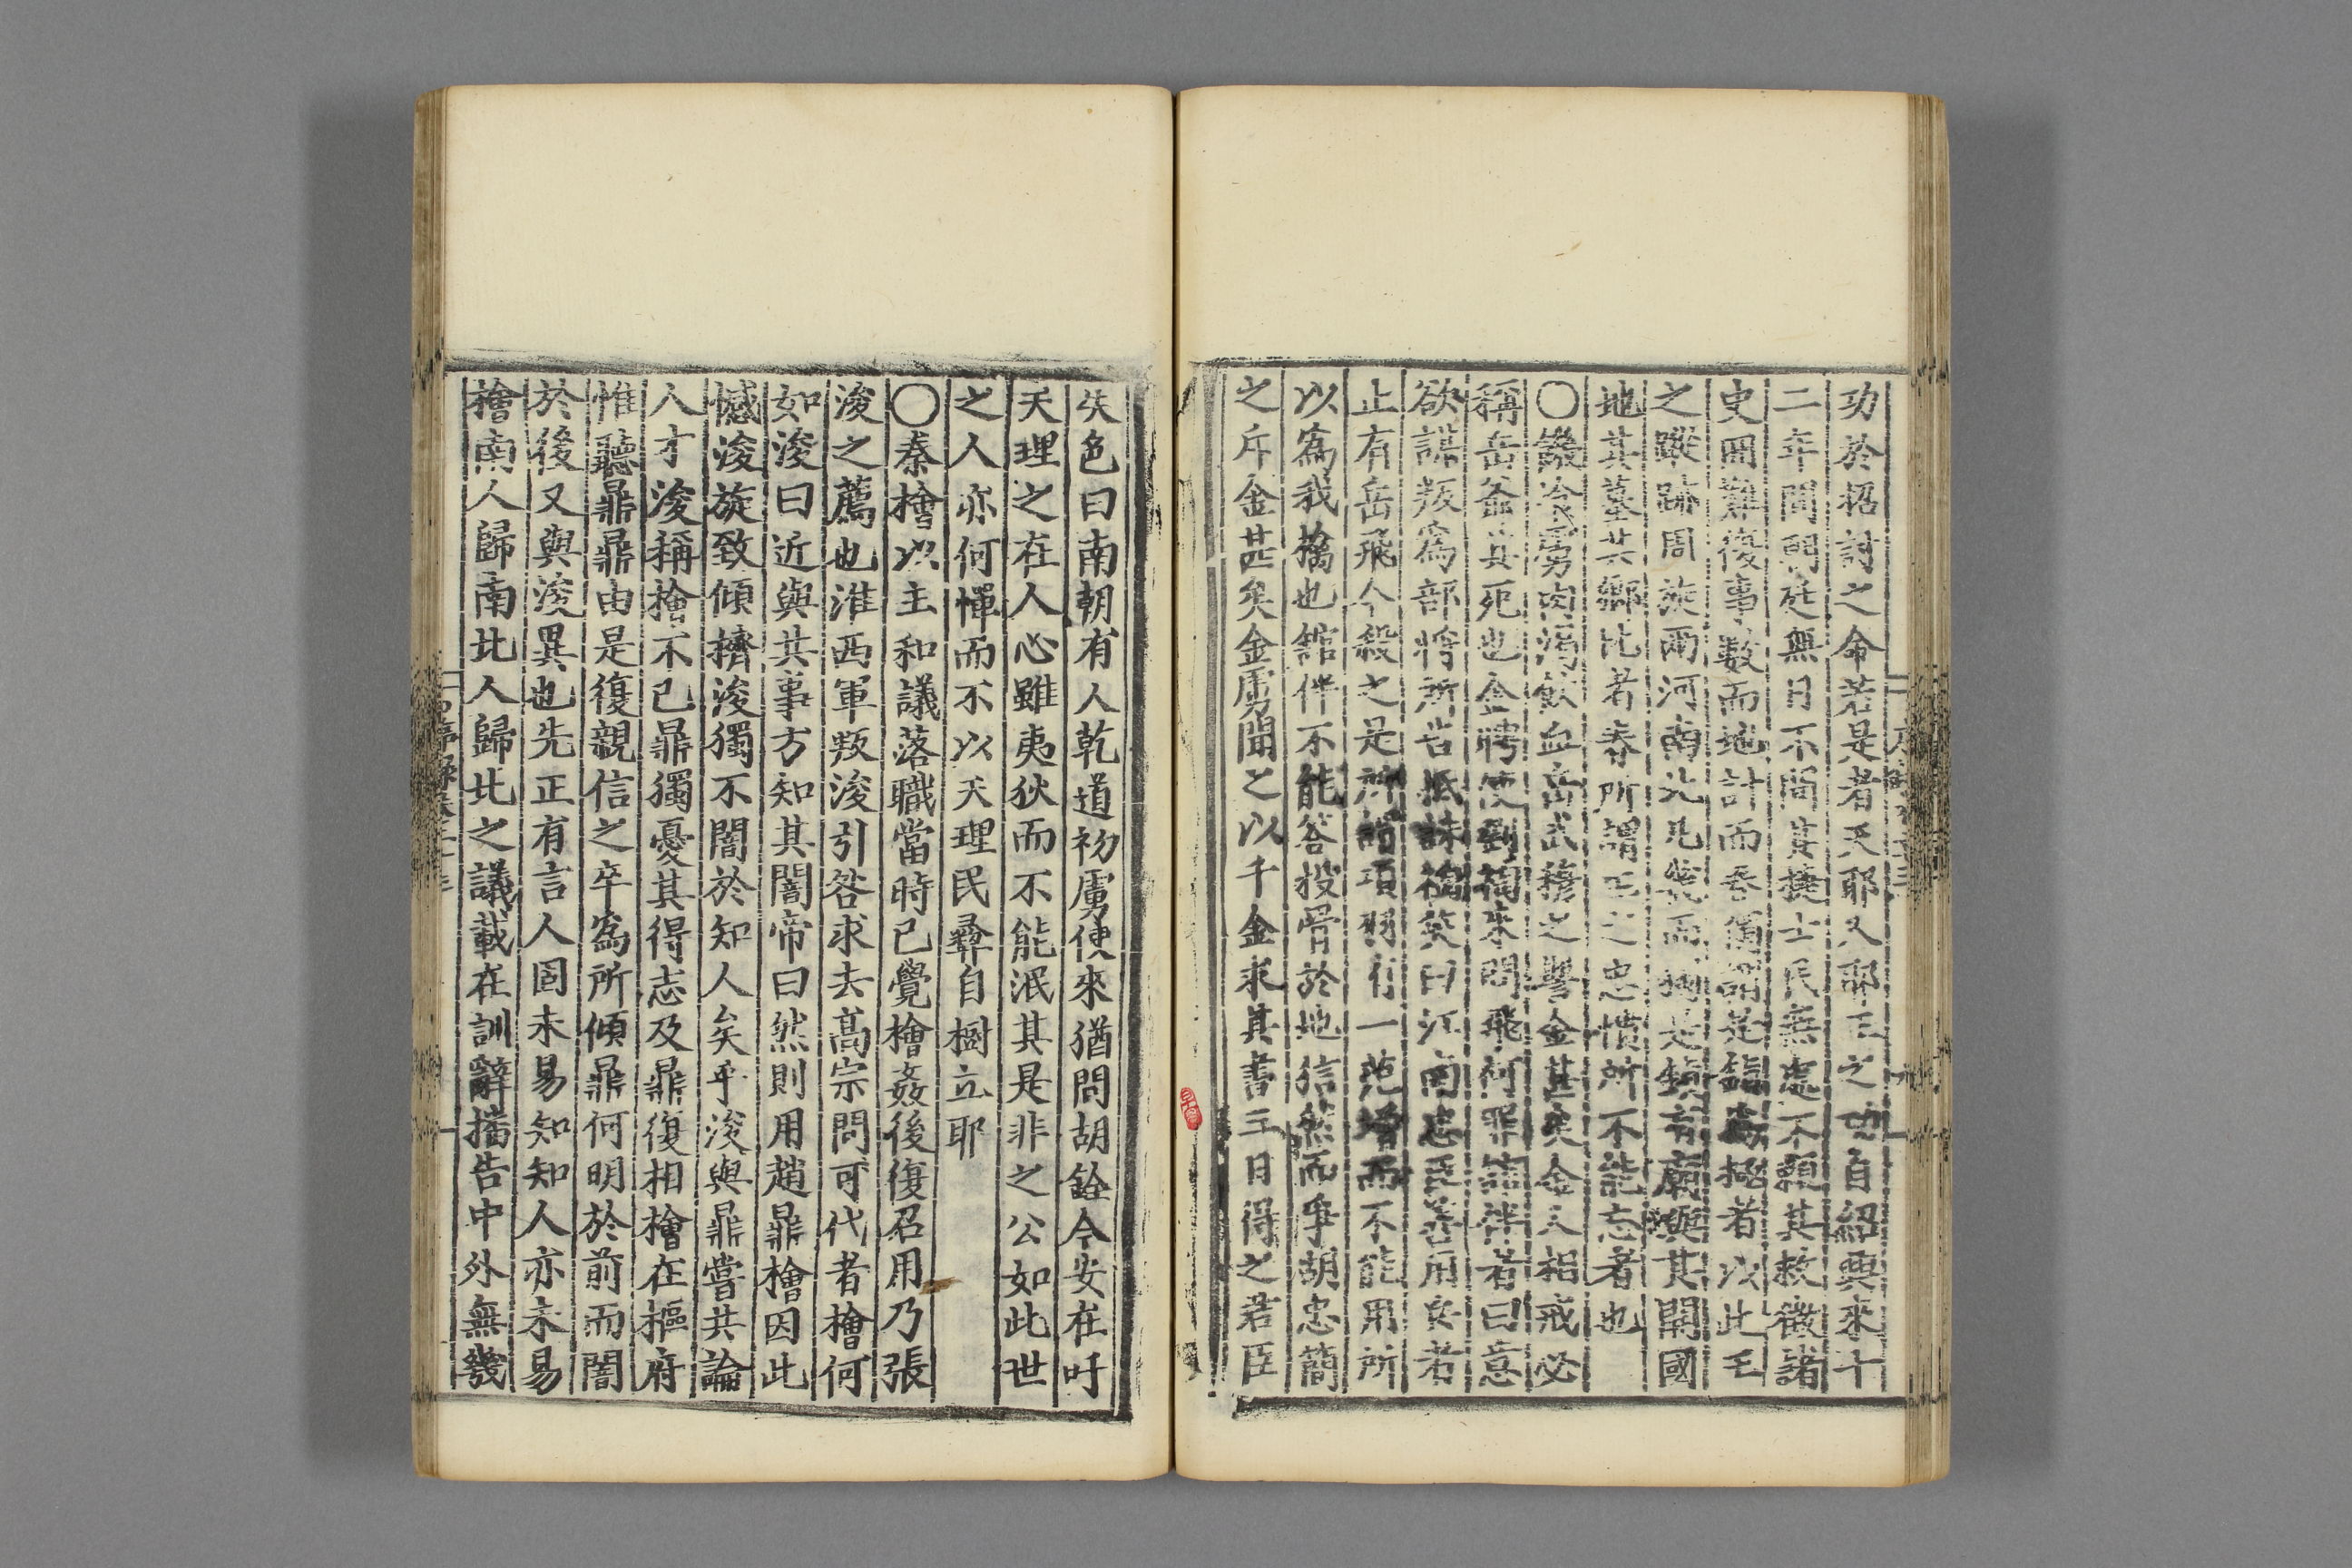 功於招討之命若是者天耶人耶王之功自紹興來十
二年間朝廷無日不聞其捷士民無處不賴其救徵諸
史冊難復事數而地計而吾
之蹤跡周旋兩河南北凡幾而
地其墓其鄉比者春所謂王之忠憤所不能忘者也
○饑飡虜肉渴飲血岳武穆之譽金甚矣金人相戒必
稱岳爺其死也金聘使劉祹來問飛何罪舘伴者曰意
欲謀叛為部將所告抵誅祹笑曰江南忠臣善用兵者
止有岳飛今殺之是所謂項羽有一范增而不能用所
以為我擒也舘伴不能答投骨於地狺然而爭胡忠簡
之斥金甚矣金虜聞之以千金求其書三日得之君臣
失色曰南朝有人乾道初虜使來猶問胡銓今安在吁
天理之在人心雖夷狄而不能泯其是非之公如此世
之人亦何憚而不以天理民彝自樹立耶
○秦檜以主和議落職當時已覺檜姦後復召用乃張
浚之薦也淮西軍叛浚引咎求去高宗問可代者檜何
如浚曰近與共事方知其闇帝曰然則用趙鼎檜因此
憾浚旋致傾擠浚獨不闇於知人矣乎浚與鼎嘗共論
人才浚稱檜不已鼎獨憂其得志及鼎復相檜在樞府
惟聽鼎鼎由是復親信之卒為所傾鼎何明於前而闇
於後又與浚異也先正有言人固未易知知人亦未易
檜南人歸南北人歸北之議載在訓辭揣告中外無幾